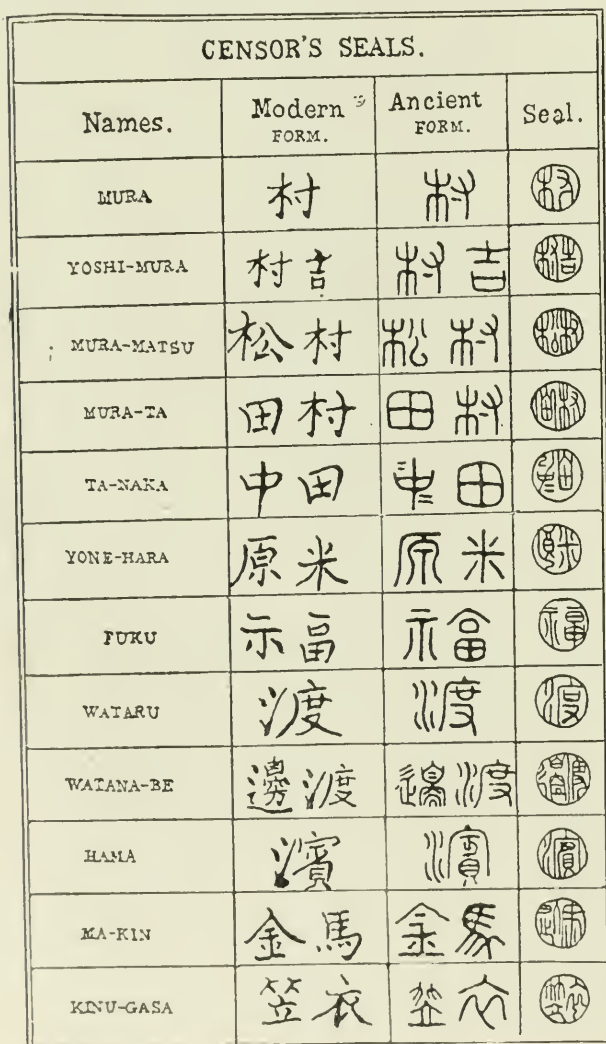 CENSOR'S SEALS.
Names. Modern FORM. Ancient FORM. Seal.
MURA 村 村
YOSHI-MURA 村吉 村吉
MURA-MATSU 松村 松村
MURA-TA 田村 田村
TA-NAKA 中田 中田
YONE-HARA 原米 原米
FUKU 示畐 示畐
WATARU 渡 渡
WATANA-BE 邊渡 邊渡
HAMA 濱 濱
MA-KIN 金馬 金馬
KINU-GASA 笠衣 笠衣